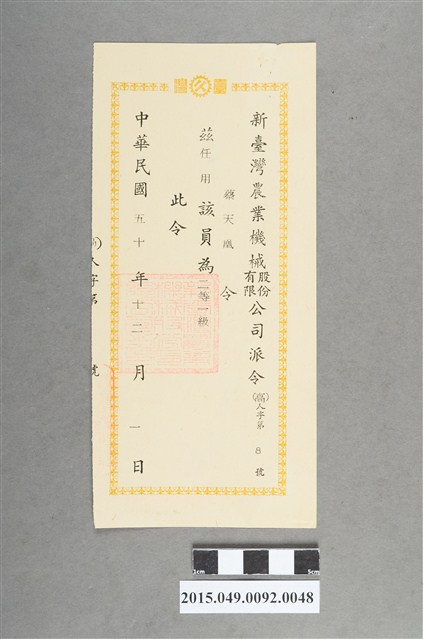 新臺灣農業機械股份有限公司派令
人字第8號
令
蔡天凰
茲任用該員為二等一級
此令
中華民國五十年十二月一日
人字第
號
1cm
5cm
2015.049.0092.0048